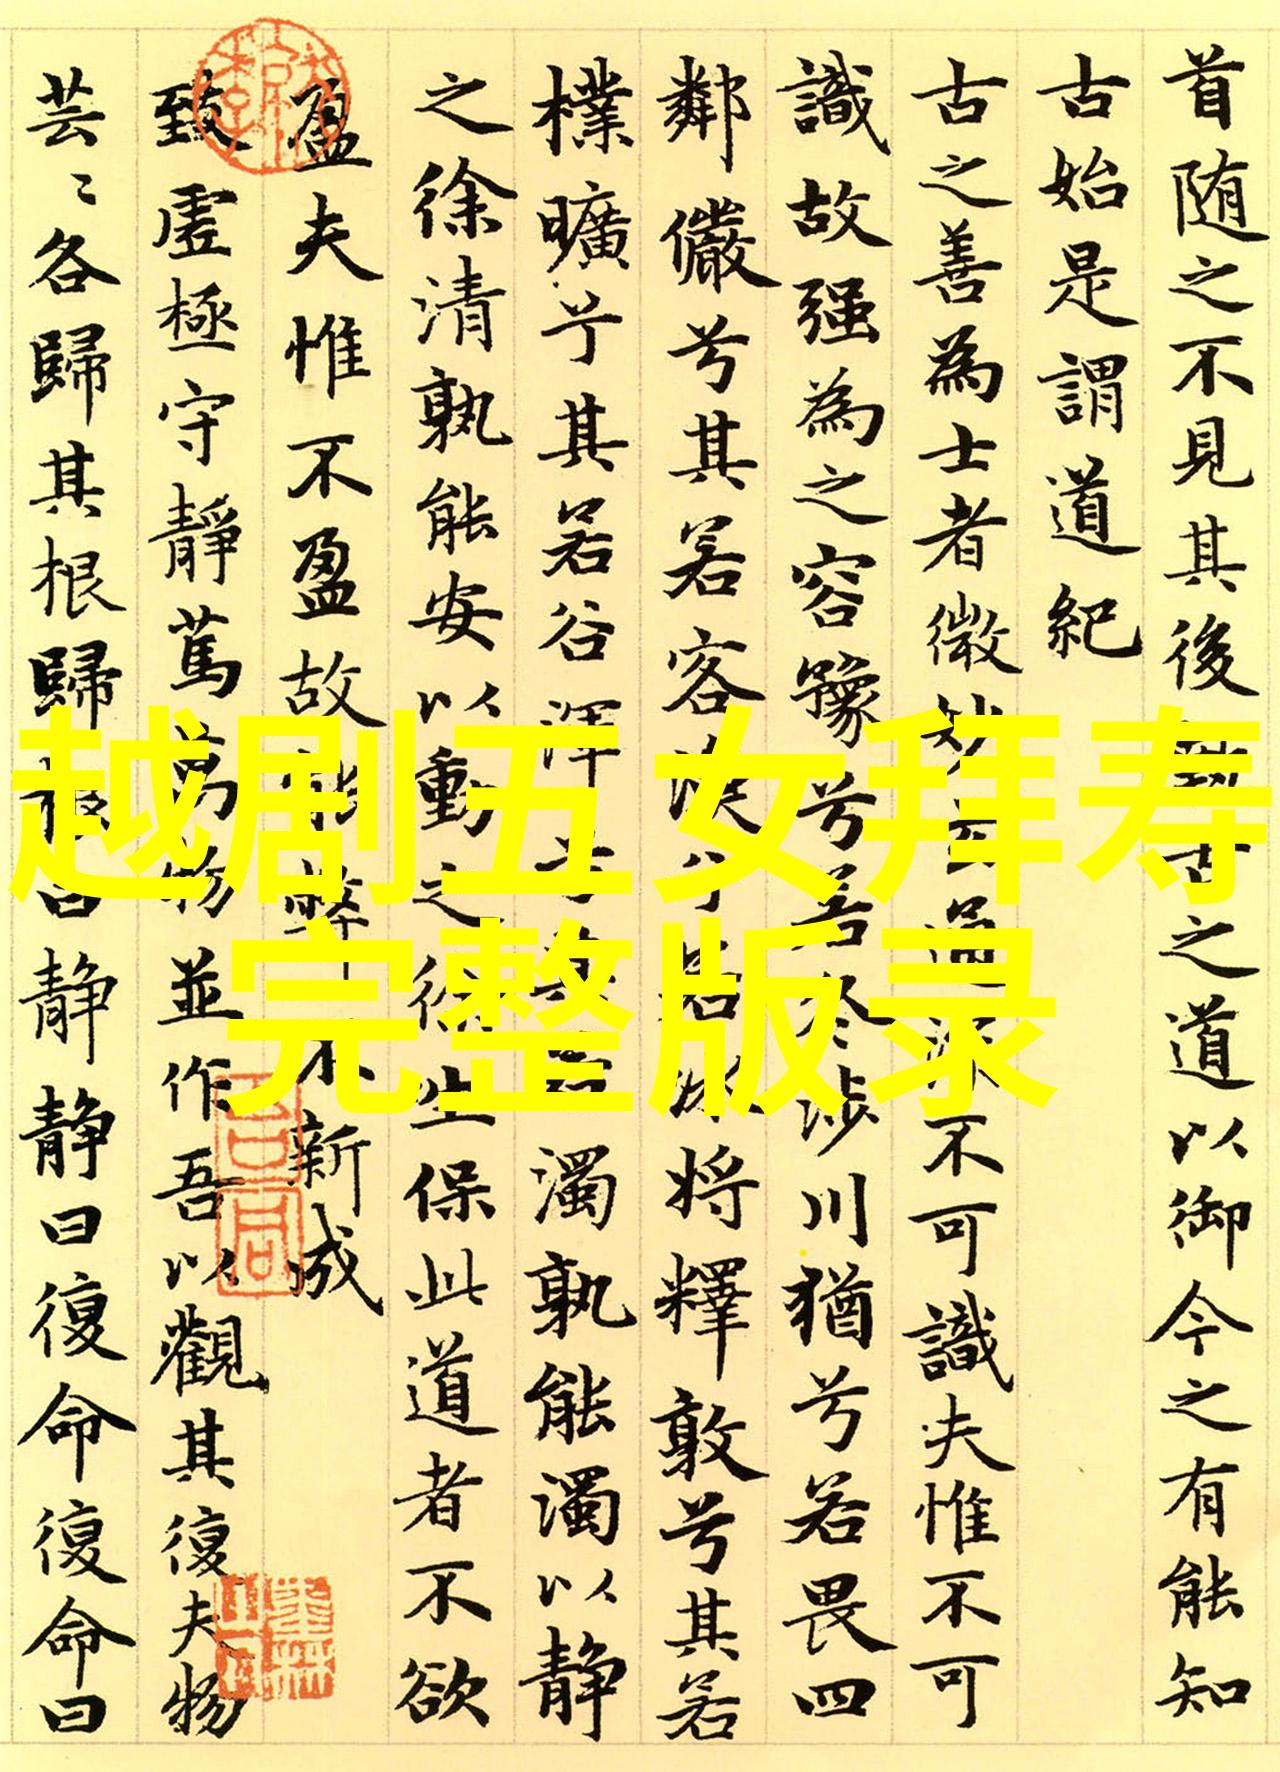 首随之不見其後執古之道以御今之有能知
古始是謂道紀
古之善為士者微妙玄通深不可識夫惟不可
識故强為之容豫兮若冬涉川猶兮若畏四
鄰儼兮其若客渙兮若冰将釋敦兮其若
樸曠兮其若谷渾兮其若濁孰能濁以静
之徐清孰能安以動之徐生保此道者不欲
盈夫惟不盈故能弊不新成
致虚極守靜篤萬物並作吾以觀其復夫物
芸〻各歸其根歸根曰静静曰復命復命曰
越剧五女拜寿
完整版录